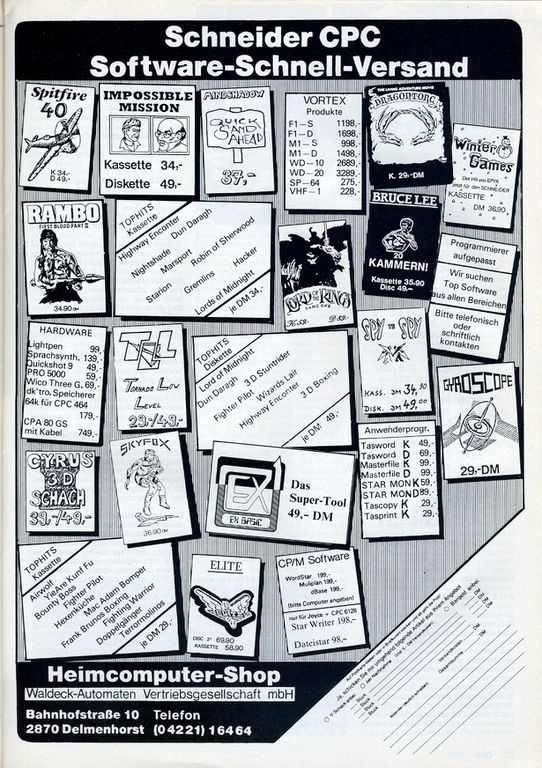 Schneider CPC
Software-Schnell-Versand
Spitfire
40
K 34,-
D 49,-
IMPOSSIBLE
MISSION
Kassette 34,-
Diskette 49,-
MINDSHADOW
QUICK
SAND
AHEAD
37,-
VORTEX
Produkte
F1-S 1198,-
F1-D 1698,-
M1-S 998,-
M1-D 1498,-
WD-10 2689,-
WD-20 3289,-
SP-64 275,-
VHF-1 228,-
THE LIVING ADVENTURE MOVIE
DRAGONTORC
K. 29.-DM
Winter
Games
Der Hit von EPYX
jetzt für den SCHNEIDER
KASSETTE
DM 36.90
RAMBO
FIRST BLOOD PART II
34.90 DM
TOPHITS
Kassette
Highway Enconter
Dun Daragh
Nightshade
Marsport
Robin of Sherwood
Starion
Gremlins
Hacker
Lords of Midnight
je DM 34,-
LORD OF THE RINGS
GAME ONE
K.59.-
D.89.-
BRUCE LEE
20
KAMMERN!
Kassette 35.90
Disc 49,-
Programmierer
aufgepasst
Wir suchen
Top Software
aus allen Bereichen
Bitte telefonisch
oder
schriftlich
kontakten
HARDWARE
Lightpen 99,-
Sprachsynth. 139,-
Quickshot 9 49,-
PRO 5000 59,-
Wico Three G. 69,-
dk'tro. Speicherer
64k für CPC 464
179,-
CPA 80 GS
mit Kabel 749,-
TLL
TORNADO LOW
LEVEL
29.-/49.-
TOPHITS
Diskette
Lord of Midnight
Dun Daragh
3 D Stuntrider
Fighter Pilot
Wizards Lair
Highway Enconter
3 D Boxing
je DM 49,-
SPY VS SPY
KASS. DM 34,90
DISK. DM 49,00
GYROSCOPE
29.-DM
CYRUS
3 D
SCHACH
39,-/49,-
SKYFOX
36.90 DM
EX
EX BASIC
Das
Super-Tool
49,- DM
Anwenderprogr.
Tasword K 49,-
Tasword D 69,-
Masterfile K 99,-
Masterfile D 99,-
STAR MON K 59,-
STAR MON D 89,-
Tascopy K 29,-
Tasprint K 29,-
TOPHITS
Kassette
Airwolf
YieAre Kunf Fu
Bounty Boss
Fighter Pilot
Hexenküche
Mac Adam Bomper
Frank Brunos Boxing
Fighting Warrior
Doppelgänger
Terrormolinos
je DM 29,-
ELITE
DISC 3" 69.90
KASSETTE 58.90
CP/M Software
WordStar 199,-
Muliplan 199,-
dBase 199,-
(bitte Computer angeben)
nur für Joyce + CPC 6128
Star Writer 198,-
Dateistar 98,-
Ja, schicken Sie mir umgehend folgende Artikel aus Ihrem Angebot
Stück
DM
Stück
DM
Stück
DM
Versandkosten
DM
Gesamtsumme
DM
Heimcomputer-Shop
Waldeck-Automaten Vertriebsgesellschaft mbH
Bahnhofstraße 10 Telefon
2870 Delmenhorst (04221) 16464